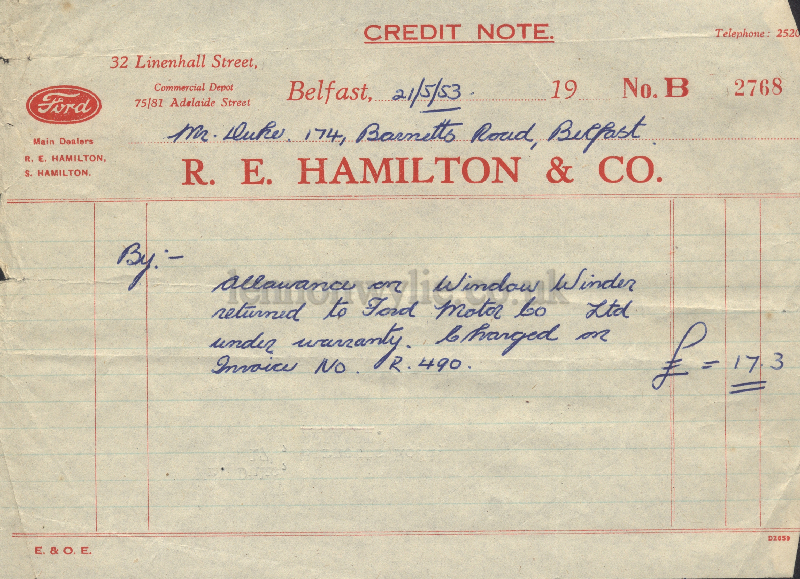 CREDIT NOTE.
Telephone: 2520
32 Linenhall Street,
Commercial Depot
75/81 Adelaide Street
Belfast, 21/5/53. 19
No. B 2768
Ford
Main Dealers
R. E. HAMILTON,
S. HAMILTON.
Mr. Duke. 174, Barnetts Road, Belfast.
R. E. HAMILTON & CO.
By:-
Allowance on Window Winder
returned to Ford Motor Co Ltd
under warranty. Charged on
Invoice No. R. 490.
£ = 17.3
lennonwylie.co.uk
E. & O. E.